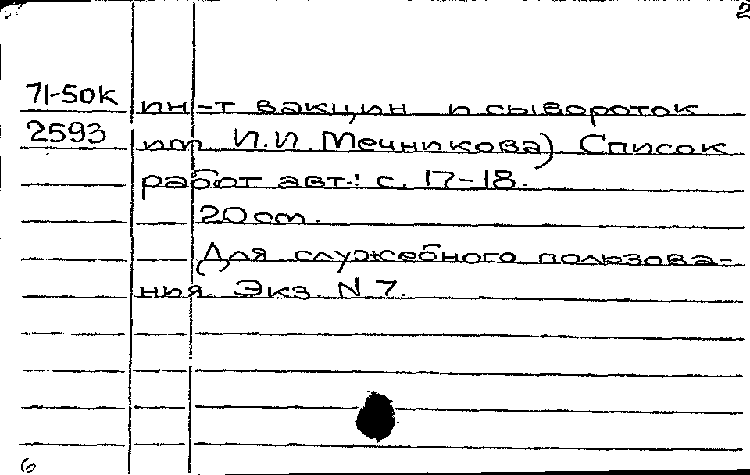 2
71-50к ин-т вакцин и сывороток
2593 им И.И. Мечникова) Список
работ авт.: с. 17-18.
20 см.
Для служебного пользова-
ния Экз. N 7.
6